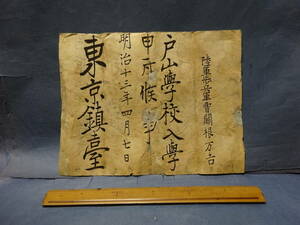 陸軍歩兵軍曹関根万吉
戸山學校入學
申付候事
明治十三年四月七日
東京鎮臺